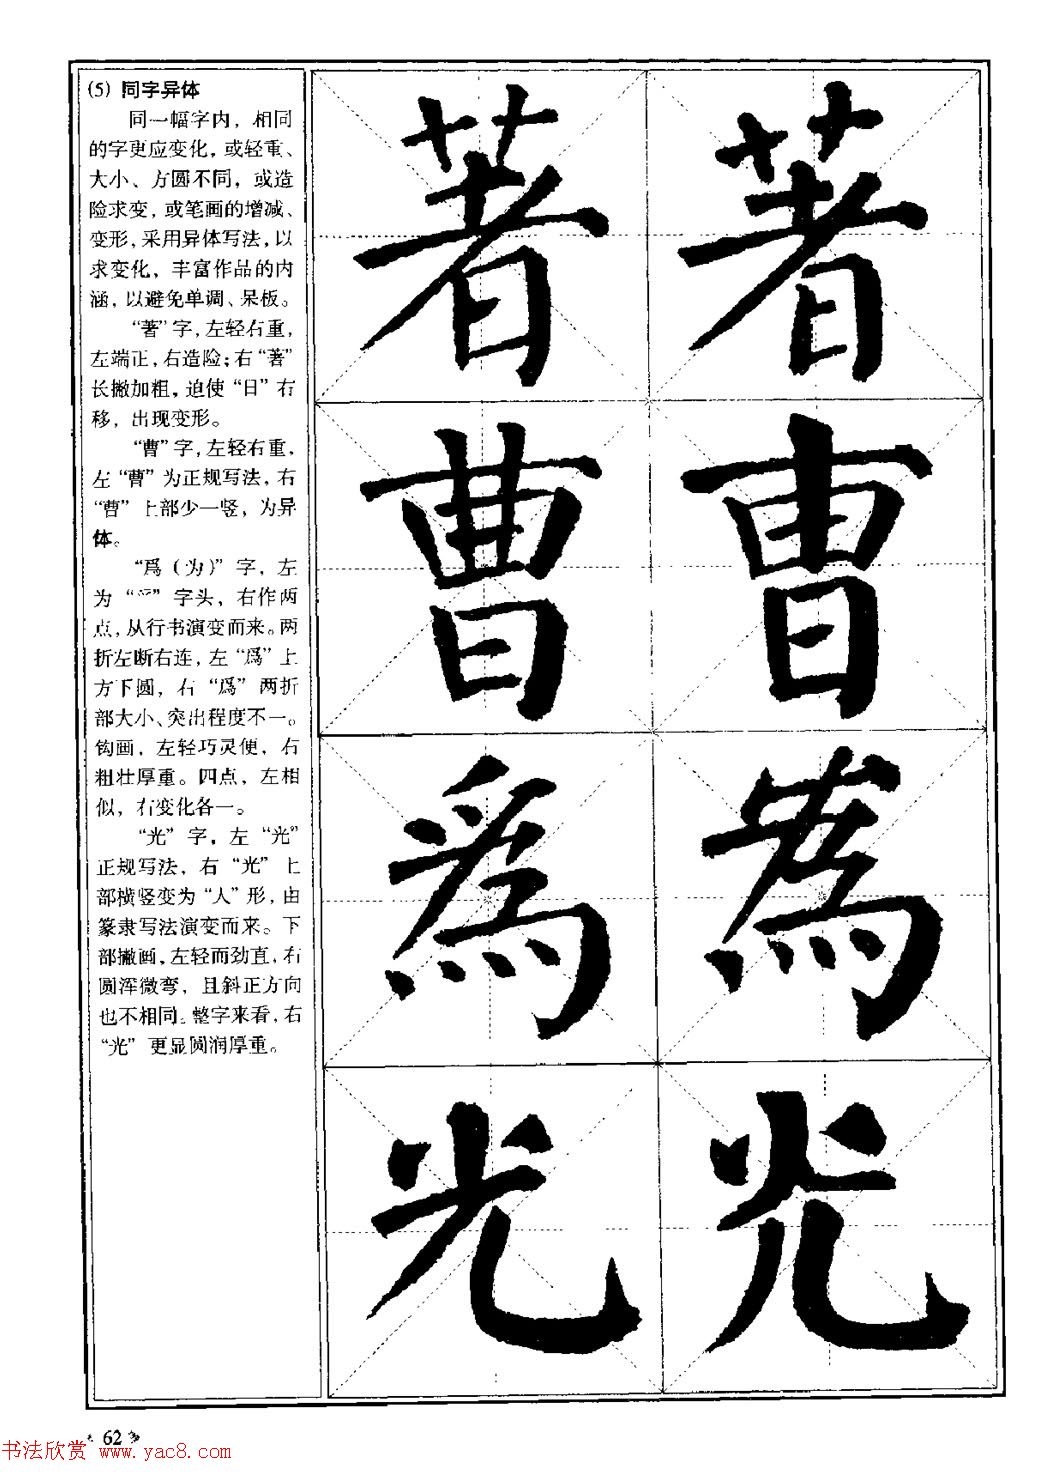 (5) 同字异体
同一幅字内，相同
的字更应变化，或轻重、
大小、方圆不同，或造
险求变，或笔画的增减、
变形，采用异体写法，以
求变化，丰富作品的内
涵，以避免单调、呆板。
“著”字，左轻右重，
左端正，右造险；右“著”
长撇加粗，迫使“日”右
移，出现变形。
“曹”字，左轻右重，
左“曹”为正规写法，右
“曹”上部少一竖，为异
体。
“爲（为）”字，左
为“爫”字头，右作两
点，从行书演变而来。两
折左断右连，左“爲”上
方下圆，右“爲”两折
部大小、突出程度不一。
钩画，左轻巧灵便，右
粗壮厚重。四点，左相
似，右变化各一。
“光”字，左“光”
正规写法，右“光”上
部横竖变为“人”形，由
篆隶写法演变而来。下
部撇画，左轻而劲直，右
圆浑微弯，且斜正方向
也不相同。整字来看，右
“光”更显圆润厚重。
著 著
曹 曺
爲 為
光 光
62
书法欣赏 www.yac8.com